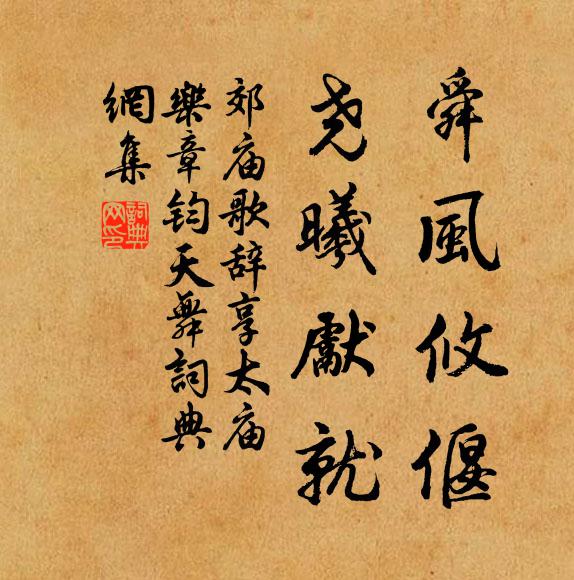 舜風攸偃
尧曦獻就
郊庙歌辞享太庙
樂章钧天舞詞典
網集
詞典网印